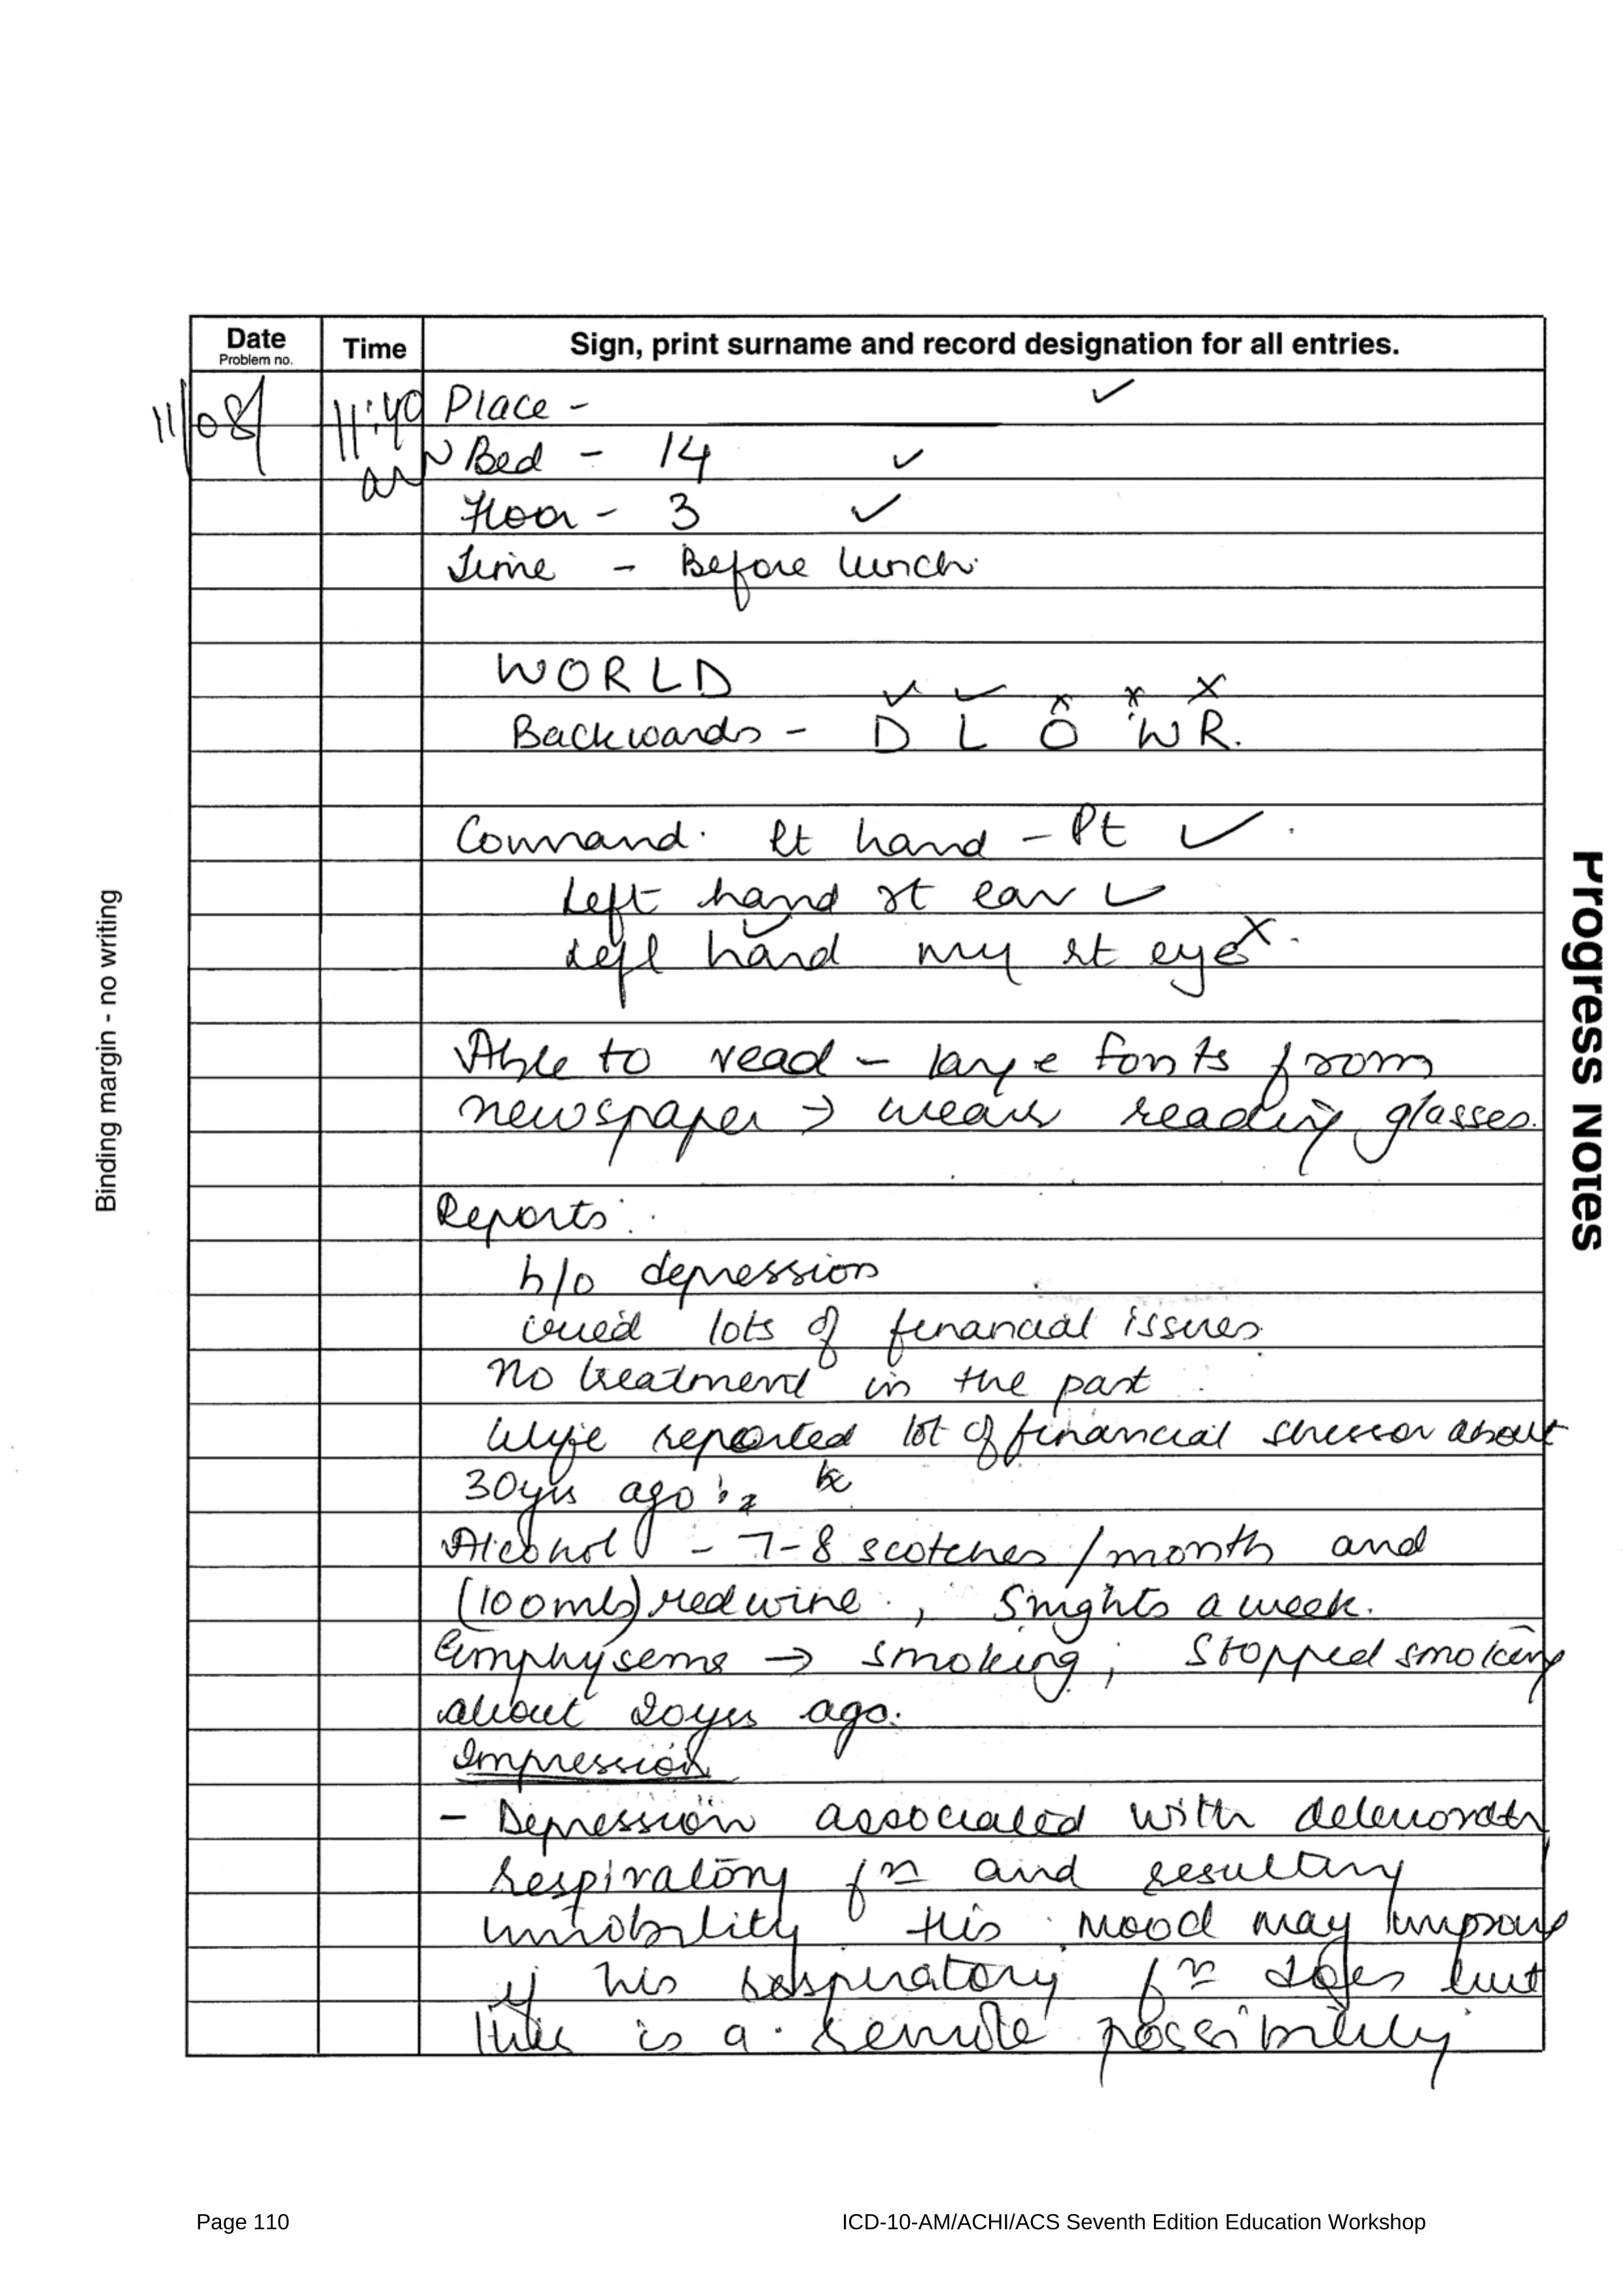 Date
Problem no.
Time
Sign, print surname and record designation for all entries.
11/08/
11:40
Place - ✓
Bed - 14 ✓
Floor - 3 ✓
Time - Before lunch.
WORLD
✓ ✓ x x x
Backwards - D L O W R.
Command. Rt hand - Pt ✓.
Left hand rt ear ✓
Left hand my rt eye x.
Able to read - large fonts from
newspaper → wears reading glasses.
Reports:
h/o depression
lots of financial issues
No treatment in the past
Wife reported lot of financial stressor about
30yrs ago
Alcohol - 7-8 scotches/month and
(100mls) red wine, 5 nights a week.
Emphysema → smoking; stopped smoking
about 20yrs ago.
Impression
- Depression associated with
respiratory fn and resulting
immobility. His mood may improve
if his respiratory fn but
this is a remote possibility
Binding margin - no writing
Progress Notes
Page 110
ICD-10-AM/ACHI/ACS Seventh Edition Education Workshop